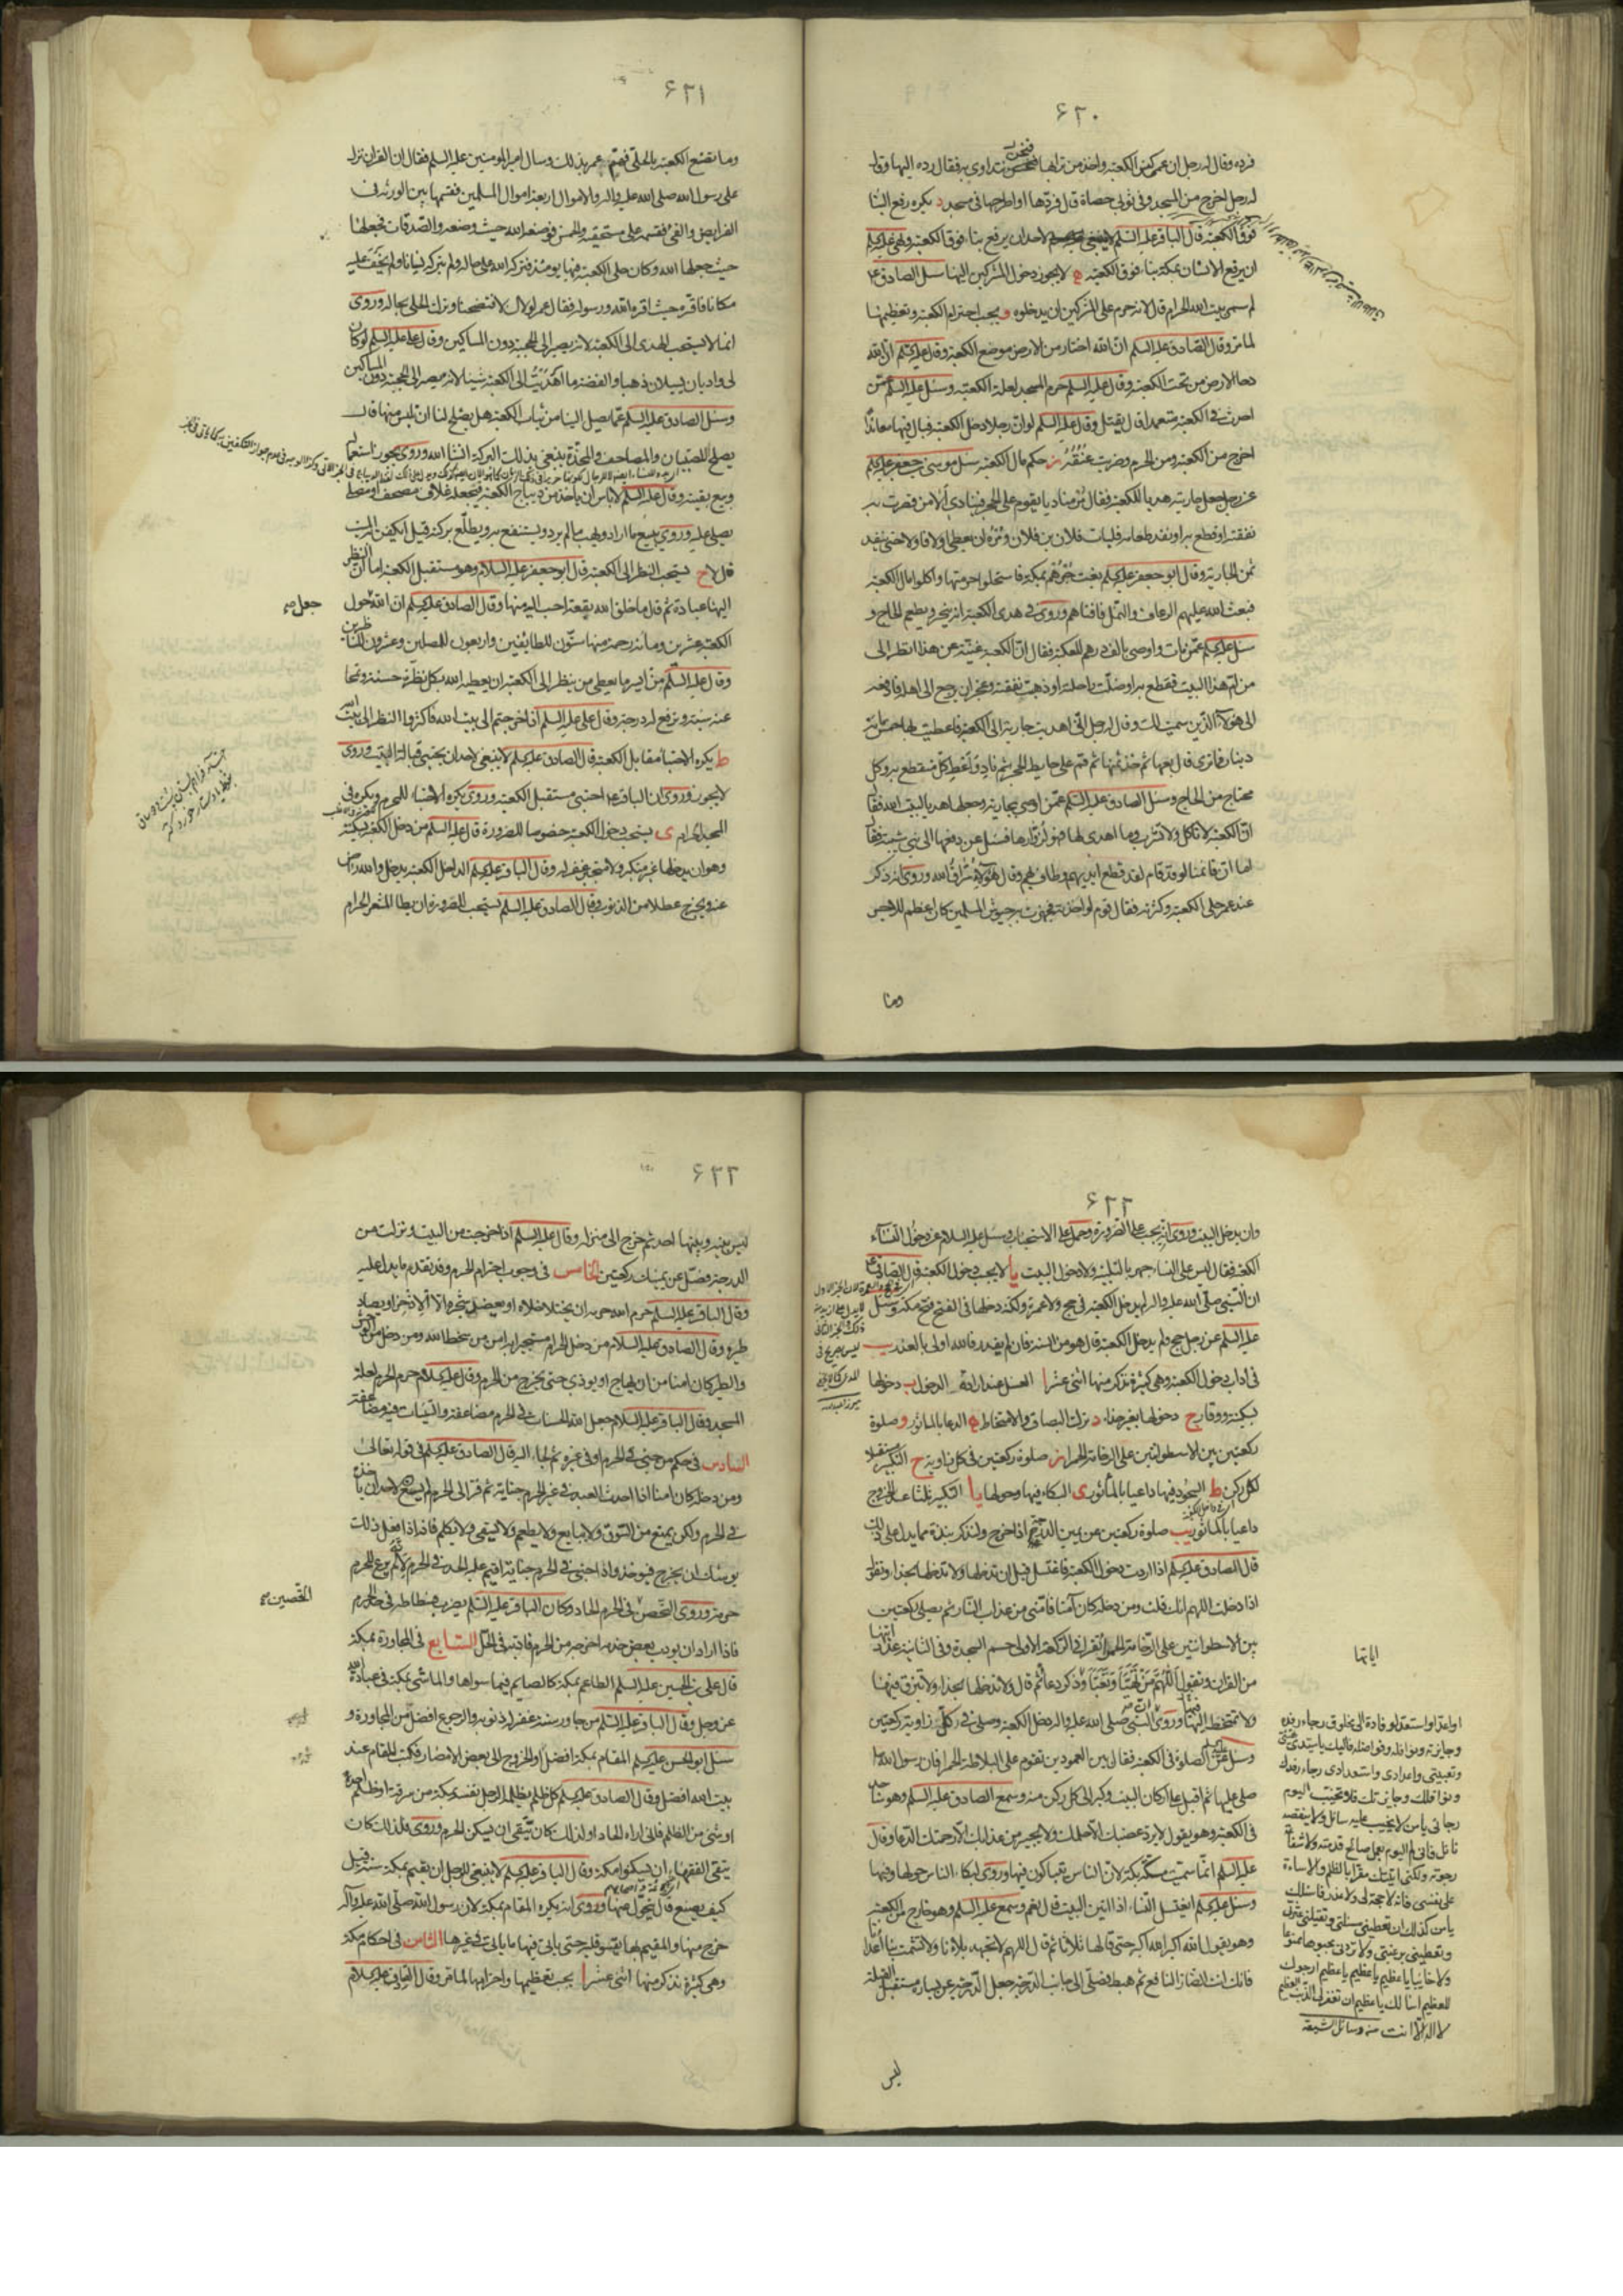 ۶۲۰
فرده وقال له رجل ان عمي كنس الكعبة واخذ من ترابها فنحن نتداوى به فقال رده اليها وقال
له رجل اخرج من المسجد وفي ثوبي حصاة قال فردّها او اطرحها في مسجد د يكره رفع البنا
فوق الكعبة قال الباقر عليه السلم لا ينبغي لاحد ان يرفع بناء فوق الكعبة
ان يرفع الانسان بمكة بناء فوق الكعبة ه لا يجوز دخول المشركين اليها سئل الصادق ع
لم سمي بيت الله الحرام قال لانه حرم على المشركين ان يدخلوه و يجب احترام الكعبة وتعظيمها
لما مر وقال الصادق عليه السلم ان الله اختار من الارض موضع الكعبة وقال عليه السلم ان الله
دحا الارض من تحت الكعبة وقال عليه السلم حرم المسجد لعلة الكعبة وسئل عليه السلم عمّن
احدث في الكعبة متعمدا قال يقتل وقال عليه السلم لو انّ رجلا دخل الكعبة فبال فيها معاندا
اخرج من الكعبة ومن الحرم وضربت عنقه ز حكم مال الكعبة سئل موسى بن جعفر عليه السلم
عن رجل جعل جاريته هديا للكعبة فقال مُر مناديا يقوم على الحجر فينادي ألا من قصرت به
نفقته او قطع به او نفد طعامه فليأت فلان بن فلان ومُره ان يعطي اولا فاولا حتى ينفد
ثمن الجارية وقال ابو جعفر عليه السلم بغت جُرهُم بمكة فاستحلوا حرمتها واكلوا مال الكعبة
فبعث الله عليهم الرعاف والنمل فافناهم وروى في هدى الكعبة انه ينحر ويطعم الحاج و
سئل عليه السلم عمن مات واوصى بالف درهم للكعبة فقال انّ الكعبة غنيّة عن هذا انظر الى
من امّ هذا البيت فقطع به او ضلّت راحلته او ذهبت نفقته وعجز ان يرجع الى اهله فادفعه
الى هؤلاء الذين سميت لك وقال له رجل اني اهديت جارية الى الكعبة فاعطيت بها خمسمائة
دينار فما ترى قال بعها ثم خذ ثمنها ثم قم على حايط الحجر ثم ناد واعط كل منقطع به وكل
محتاج من الحاج وسئل الصادق عليه السلم عمّن اوصى بجارية وجعلها هديا لبيت الله فقال
انّ الكعبة لا تاكل ولا تشرب وما اهدى لها فهو لزوّارها فسئل عن دفعها الى بني شيبة فقال
اما انّ قائمنا لو قد قام لقد قطع ايديهم وطاف بهم وقال هؤلاء سُرّاق الله وروى انه ذكر
عند عمر حلى الكعبة وكثرته فقال قوم لو اخذته فجهزت به جيوش المسلمين كان اعظم للاجر
وما
۶۲۱
وما تصنع الكعبة بالحلي فهمّ عمر بذلك وسال امير المومنين عليه السلم فقال ان القرآن نزل
على رسول الله صلى الله عليه واله والاموال اربعة اموال المسلمين فقسمها بين الورثة في
الفرايض والفئ فقسمه على مستحقيه والخمس فوضعه الله حيث وضعه والصدقات فجعلها
حيث جعلها الله وكان حلى الكعبة فيها يومئذ فتركه الله على حاله ولم يتركه نسيانا ولم يخف عليه
مكانا فاقرّه حيث اقره الله ورسوله فقال عمر لولاك لافتضحنا وترك الحلي بحاله وروى
انما لا يستحب الهدى الى الكعبة لانه يصير الى الحجبة دون المساكين وقال علي عليه السلم لو كان
لي واديان يسيلان ذهبا وفضة ما اهديتُ الى الكعبة شيئا لانه يصير الى الحجبة دون المساكين
وسئل الصادق عليه السلم عما يصل الينا من ثياب الكعبة هل يصلح لنا ان نلبس منها قال
يصلح للصبيان والمصاحف والمخدّة يبتغي بذلك البركة انشا الله وروى يجوز استعمال
وبيع بقيته وقال عليه السلم لا باس ان ياخذ من ديباج الكعبة فيجعله غلاف مصحف او مصلى
يصلي عليه وروي يبيع ما اراد ويهب ما لم يرد ويستنفع به ويطلب بركته قيل ايكفن الميت
قال لا ح يستحب النظر الى الكعبة قال ابو جعفر عليه السلام وهو مستقبل الكعبة اما ان النظر
اليها عبادة ثم قال ما خلق الله بقعة احب اليه منها وقال الصادق عليه السلم ان الله حول
جعل صح
الكعبة عشرين ومائة رحمة منها ستّون للطائفين واربعون للمصلين وعشرون للناظرين
وقال عليه السلم من ايسر ما يعطى من ينظر الى الكعبة ان يعطيه الله بكل نظرة حسنة ويمحا
عنه سيئة ويرفع له درجة وقال علي عليه السلم اذا خرجتم الى بيت الله فاكثروا النظر الى بيت الله
ط يكره الاحتباء مقابل الكعبة قال الصادق عليه السلم لا ينبغي لاحد ان يحتبي قبالة البيت وروى
لا يجوز وروى ان الباقر ع احتبى مستقبل الكعبة وروى يكره الاحتباء للمحرم ويكره في
المسجد الحرام ى يستحب دخول الكعبة خصوصا للضرورة قال عليه السلم من دخل الكعبة بسكينة
وهو ان يدخلها غير متكبر ولا متجبر غفر له وقال الباقر عليه السلم الداخل الكعبة يدخل والله راض
عنه ويخرج عطلا من الذنوب وقال الصادق عليه السلم يستحب للصرورة ان يطا المشعر الحرام
۶۲۲
وان يدخل البيت وروى انه يجب على الصرورة وحمل على الاستحباب وسئل عليه السلام عن دخول النساء
الكعبة فقال ليس على النساء جهر بالتلبية ولا دخول البيت يا لا يجب دخول الكعبة قال الصادق ع
ان النبي صلى الله عليه واله لم يدخل الكعبة في حج ولا عمرة ولكنه دخلها في الفتح فتح مكة وسئل
عليه السلم عن رجل حج ولم يدخل الكعبة قال هو من السنة فان لم يقدر فالله اولى بالعذر يب
في اداب دخول الكعبة وهي كثيرة نذكر منها اثني عشر ا الغسل عند ارادة الدخول ب دخولها
بسكينة ووقار ج دخولها بغير حذاء د ترك البصاق والامتخاط ه الدعا بالماثور و صلوة
ركعتين بين الاسطوانتين على الرخامة الحمرا ز صلوة ركعتين في كل زاوية ح التكبير مستقبلا
لكل ركن ط السجود فيها داعيا بالمأثور ى البكاء فيها وحولها يا التكبير ثلثا عند الخروج
داعيا بالماثور يب صلوة ركعتين عن يمين الدرجة اذا خرج ولنذكر نبذة مما يدل على ذلك
قال الصادق عليه السلم اذا اردت دخول الكعبة فاغتسل قبل ان تدخلها ولا تدخلها بحذاء وتقول
اذا دخلت اللهم انك قلت ومن دخله كان آمنا فآمنّي من عذاب النار ثم يصلي ركعتين
بين الاسطوانتين على الرخامة الحمراء تقرا في الركعة الاولى حم السجدة وفي الثانية عدد اياتها
اياتها
من القران وتقول اَللّهُمَّ مَنْ تَهَيَّأَ وَتَعَبَّأَ وذكر دعاء ثم قال ولا تدخلها بحذاء ولا تبزق فيها
ولا تمتخط فيها وروى ان النبي صلى الله عليه واله دخل الكعبة وصلى في كل زاوية ركعتين
وسئل عن الصلوة في الكعبة فقال بين العمودين تقوم على البلاطة الحمراء فان رسول الله
صلى عليها ثم اقبل على اركان البيت وكبر الى كل ركن منه وسمع الصادق عليه السلم وهو ساجد
في الكعبة وهو يقول لا يرد غضبك الا حلمك ولا يجير من عذابك الا رحمتك الدعا وقال
عليه السلم انما سميت مكة بكة لان الناس يتباكون فيها وروى لبكاء الناس حولها وفيها
وسئل عليه السلم ايغتسل النساء اذا اتين البيت قال نعم وسمع عليه السلم وهو خارج من الكعبة
وهو يقول الله اكبر الله اكبر حتى قالها ثلاثا ثم قال اللهم لا تجهد بلاءنا ولا تشمت بنا اعداءنا
فانك انت الضار النافع ثم هبط فصلى الى جانب الدرجة جعل الدرجة عن يساره مستقبل القبلة
او اعد او استعد لوفادة الى مخلوق رجاء رفده
وجايزته ونوافله وفواضله فاليك يا سيدي تهيئتي
وتعبيتي واعدادي واستعدادي رجاء رفدك
ونوافلك وجايزتك فلا تخيب اليوم
رجائي يا من لا يخيب عليه سائل ولا ينقصه
نائل فاني لم اتك اليوم بعمل صالح قدمته ولا شفاعة
رجوته ولكني اتيتك مقرا بالظلم والاساءة
على نفسي فانه لا حجة لي ولا عذر فاسئلك
يا من هو كذلك ان تعطيني مسئلتي وتقيلني عثرتي
وتعطيني برغبتي ولا تردني مجبوها ممنوعا
ولا خائبا يا عظيم يا عظيم يا عظيم ارجوك
للعظيم اسالك يا عظيم ان تغفر لي الذنب العظيم
لا اله الا انت منه وسائل الشيعة
ليس
۶۲۳
ليس بينه وبينها احد ثم خرج الى منزله وقال عليه السلم اذا خرجت من البيت ونزلت من
الدرجة فصل عن يمينك ركعتين الخامس في وجوب احترام الحرم وقد تقدم ما يدل عليه
وقال الباقر عليه السلم حرم الله حرمه ان يختلا خلاه او يعضد شجره الا الاذخر او يصاد
طيره وقال الصادق عليه السلام من دخل الحرم مستجيرا به امن من سخط الله ومن دخل من الوحش
والطير كان امنا من ان يهاج او يوذي حتى يخرج من الحرم وقال عليه السلام حرم الحرم لعلة
المسجد وقال الباقر عليه السلام جعل الله الحسنات في الحرم مضاعفة والسيئات فيه مضاعفة
السادس في حكم من جنى في الحرم او في غيره ثم لجاء اليه قال الصادق عليه السلم في قوله تعالى
ومن دخله كان آمنا اذا احدث العبد في غير الحرم جناية ثم فر الى الحرم لم يسع لاحد ان ياخذه
في الحرم ولكن يمنع من السوق ولا يبايع ولا يطعم ولا يسقى ولا يكلم فانه اذا فعل ذلك
يوشك ان يخرج فيوخذ واذا جنى في الحرم جناية اقيم عليه الحد في الحرم لانه لم يرع للحرم
حرمة وروى التحصن في الحرم الحاد وكان الباقر عليه السلم يضرب فسطاطه في حد الحرم
التحصين صح
فاذا اراد ان يودب بعض خدمه اخرجه من الحرم فادبه في الحل السابع في المجاورة بمكة
قال علي بن الحسين عليه السلم الطاعم بمكة كالصايم فيما سواها والماشي بمكة في عبادة الله
عز وجل وقال الباقر عليه السلم من جاور سنة غفر له ذنوبه والرجوع افضل من المجاورة و
سئل ابو الحسن عليه السلم المقام بمكة افضل او الخروج الى بعض الامصار فكتب المقام عند
بيت الله افضل وقال الصادق عليه السلم كل ظلم يظلم الرجل نفسه بمكة من سرقة او ظلم احد
او شئ من الظلم فاني اراه الحادا ولذلك كان يتقى ان يسكن الحرم وروى ولذلك كان
يتقي الفقهاء ان يسكنوا مكة وقال الباقر عليه السلم لا ينبغي للرجل ان يقيم بمكة سنة قيل
كيف يصنع قال يتحول عنها وروى انه يكره المقام بمكة لان رسول الله صلى الله عليه وآله
خرج منها والمقيم بها يقسو قلبه حتى ياتي فيها ما ياتي في غيرها الثامن في احكام مكة
وهي كثيرة نذكر منها اثنى عشر ا يجب تعظيمها واحترامها لما مر وقال الباقر عليه السلام